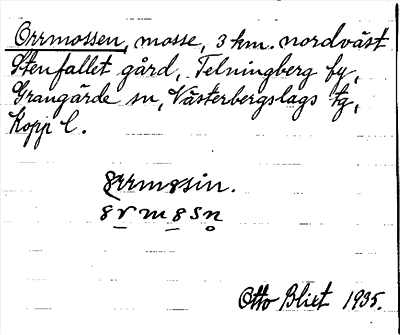 Orrmossen, mosse, 3 km. nordväst
Stenfallet gård, Telningberg by,
Grangärde sn, Västerbergslags tg,
Kopp l.
orrmosin.
ormosn
Otto Blixt 1935.